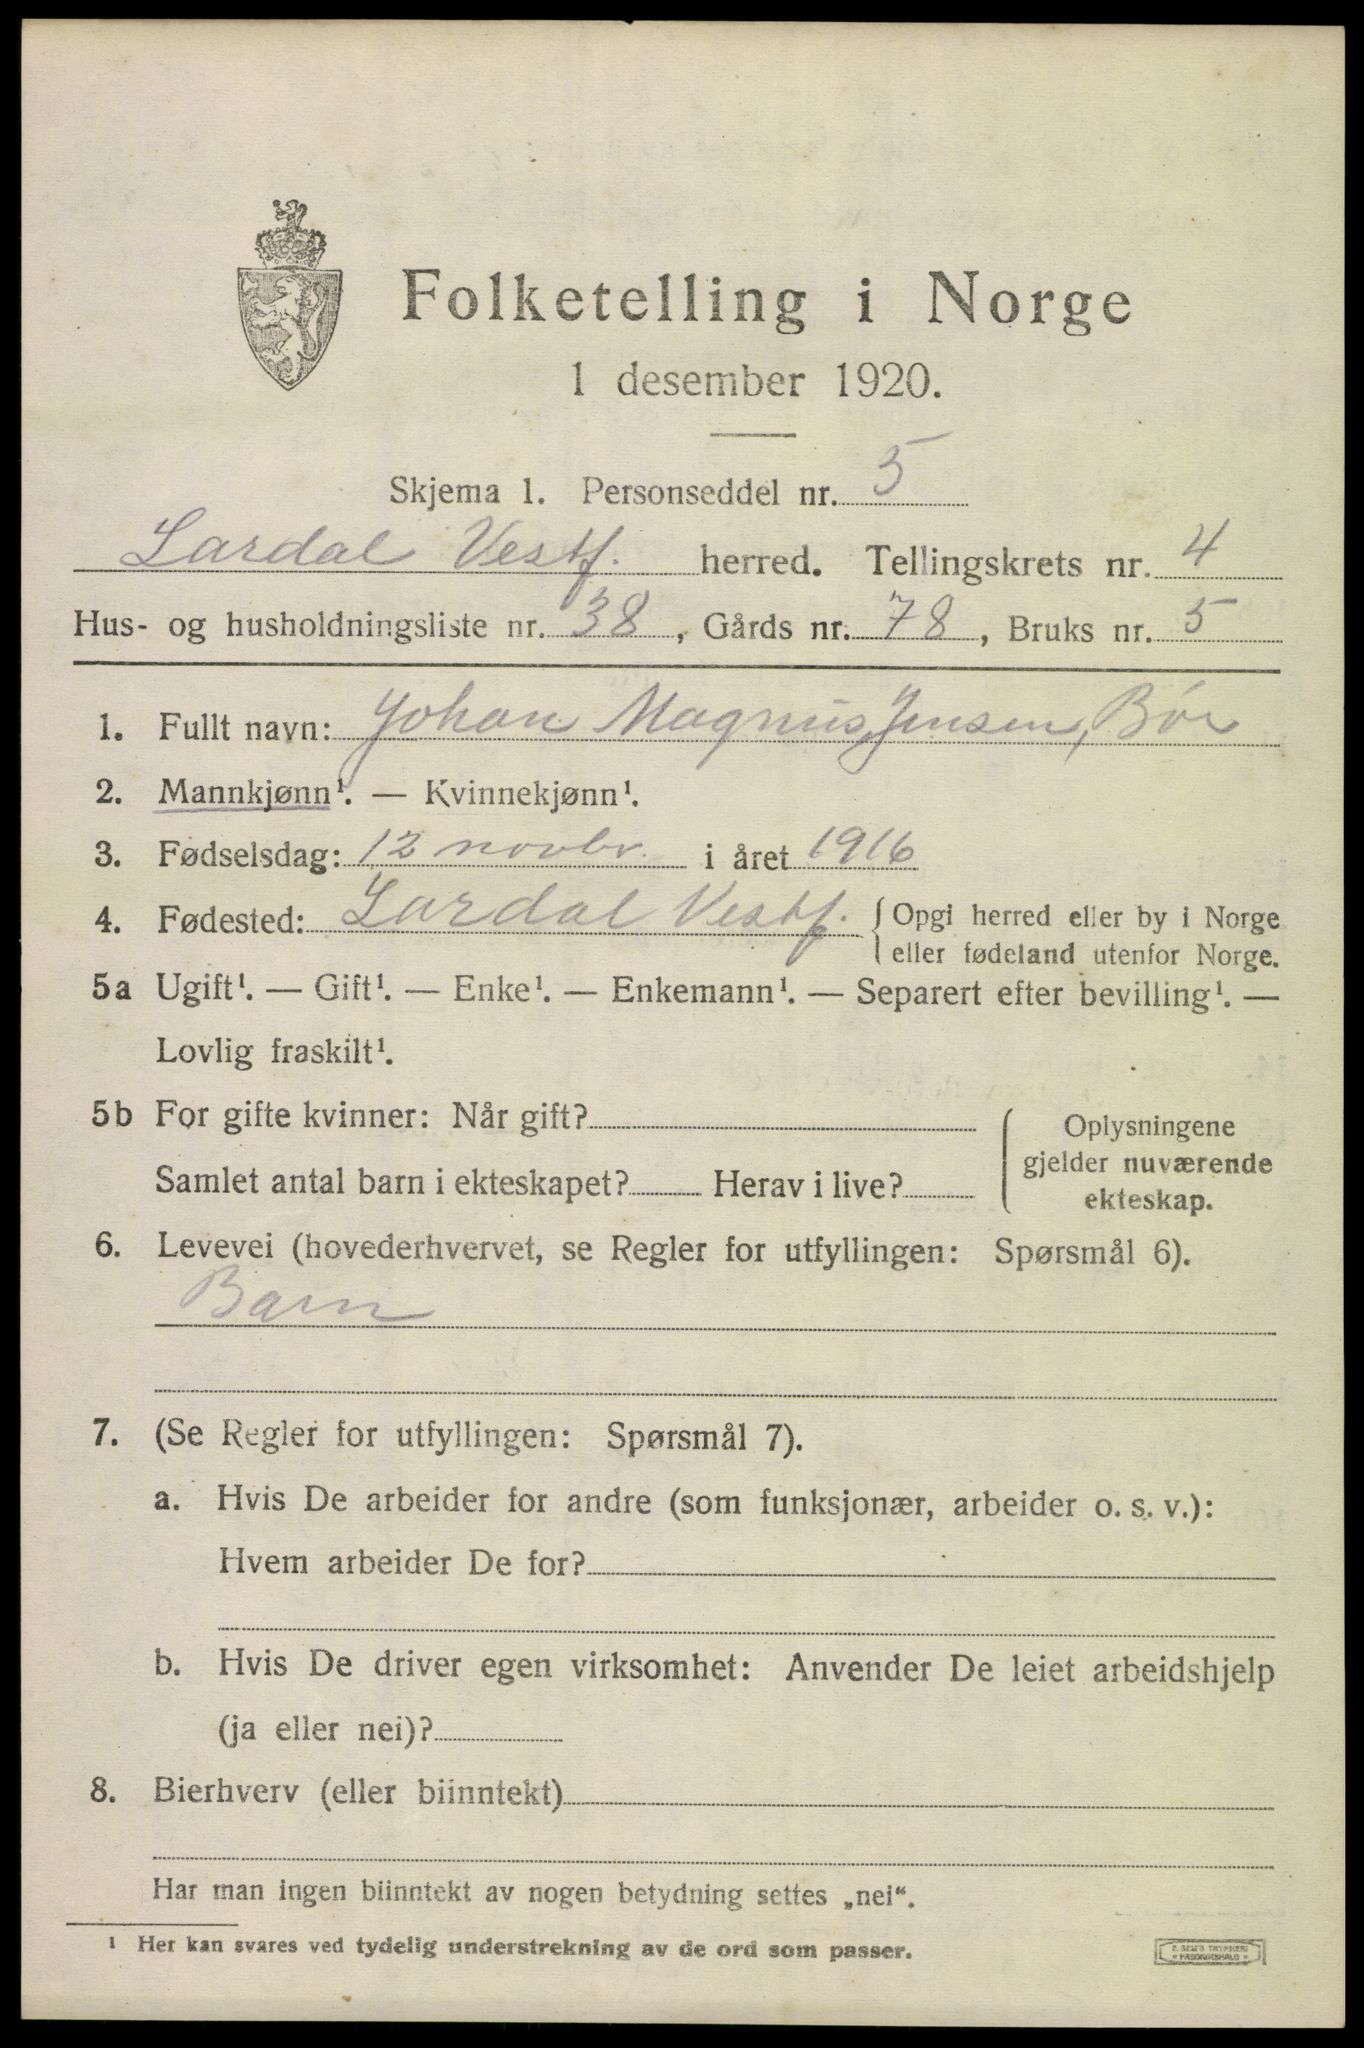 Folketelling i Norge
1 desember 1920.
Skjema 1. Personseddel nr. 5
Lardal Vestf. herred. Tellingskrets nr. 4
Hus- og husholdningsliste nr. 38, Gårds nr. 78, Bruks nr. 5
1. Fullt navn: Johan Magnus Jensen, Bøe
2. Mannkjønn¹. — Kvinnekjønn¹.
3. Fødselsdag: 12 novbr. i året 1916
4. Fødested: Lardal Vestf. {Opgi herred eller by i Norge
eller fødeland utenfor Norge.
5a Ugift¹. — Gift¹. — Enke¹. — Enkemann¹. — Separert efter bevilling¹. —
Lovlig fraskilt¹.
5b For gifte kvinner: Når gift?
Samlet antal barn i ekteskapet? Herav i live?
Oplysningene
gjelder nuværende
ekteskap.
6. Levevei (hovederhvervet, se Regler for utfyllingen: Spørsmål 6).
Barn
7. (Se Regler for utfyllingen: Spørsmål 7).
a. Hvis De arbeider for andre (som funksjonær, arbeider o. s. v.):
Hvem arbeider De for?
b. Hvis De driver egen virksomhet: Anvender De leiet arbeidshjelp
(ja eller nei)?
8. Bierhverv (eller biinntekt)
Har man ingen biinntekt av nogen betydning settes „nei“.
¹ Her kan svares ved tydelig understrekning av de ord som passer.